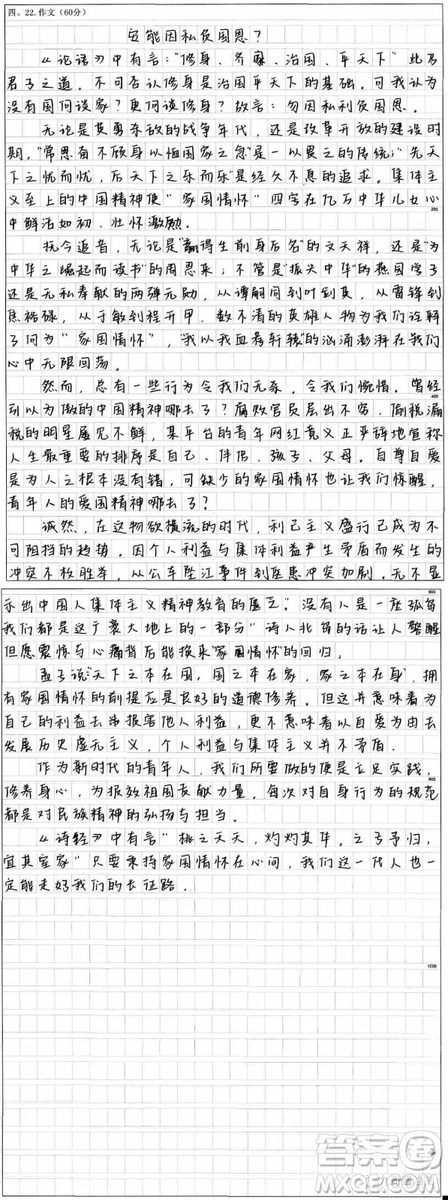 四、22.作文（60分）
安能因私负国恩？
《论语》中有言："修身、齐家、治国、平天下"此乃
君子之道，不可否认修身是治国平天下的基础，可我认为
没有国何谈家？更何谈修身？故言：勿因私利负国恩。
无论是英勇奋敌的战争年代，还是改革开放的建设时
期，"常思奋不顾身以徇国家之急"是一以贯之的传统；"先天
下之忧而忧，后天下之乐而乐"是经久不息的追求。集体主
义至上的中国精神使"家国情怀"四字在亿万中华儿女心
中鲜活如初，壮怀激励。
抚今追昔，无论是"赢得生前身后名"的文天祥，还是"为
中华之崛起而读书"的周恩来；不管是"振兴中华"的燕园学子
还是无私奉献的两弹元勋，从谭嗣同到叶剑英，从雷锋到
焦裕禄，从于敏到程开甲，数不清的英雄人物为我们诠释
了何为"家国情怀"，"我以我血荐轩辕"的汹涌澎湃在我们
心中无限回荡。
然而，总有一些行为令我们无奈，令我们惋惜。曾经
引以为傲的中国精神哪去了？腐败官员层出不穷，偷税漏
税的明星屡见不鲜，某平台的青年网红竟义正严辞地宣称
人生最重要的排序是自己、伴侣、孩子、父母。自尊自爱
是为人之根本没有错，可缺少的家国情怀也让我们惊醒，
青年人的爱国精神哪去了？
诚然，在这物欲横流的时代，利己主义盛行已成为不
可阻挡的趋势，因个人利益与集体利益产生矛盾而发生的
冲突不枚胜举，从公车坠江事件到医患冲突加剧，无不显
示出中国人集体主义精神教育的匮乏。"没有人是一座孤岛
我们都是这广袤大地上的一部分"诗人北岛的话让人警醒
但愿震惊与心痛背后能换来"家国情怀"的回归。
孟子说"天下之本在国，国之本在家，家之本在身"，拥
有家国情怀的前提应是良好的道德修养。但这并意味着为
自己的利益去谋报害他人利益，更不意味着以自爱为由去
发展历史虚无主义，个人利益与集体主义并不矛盾。
作为新时代的青年人，我们所要做的便是立足实践，
修养身心，为报效祖国贡献力量，每次对自身行为的规范
都是对民族精神的弘扬与担当。
《诗经》中有言"桃之夭夭，灼灼其华。之子于归，
宜其室家"只要秉持家国情怀在心间，我们这一代人也一
定能走好我们的长征路。
答案圈
MXQE.COM